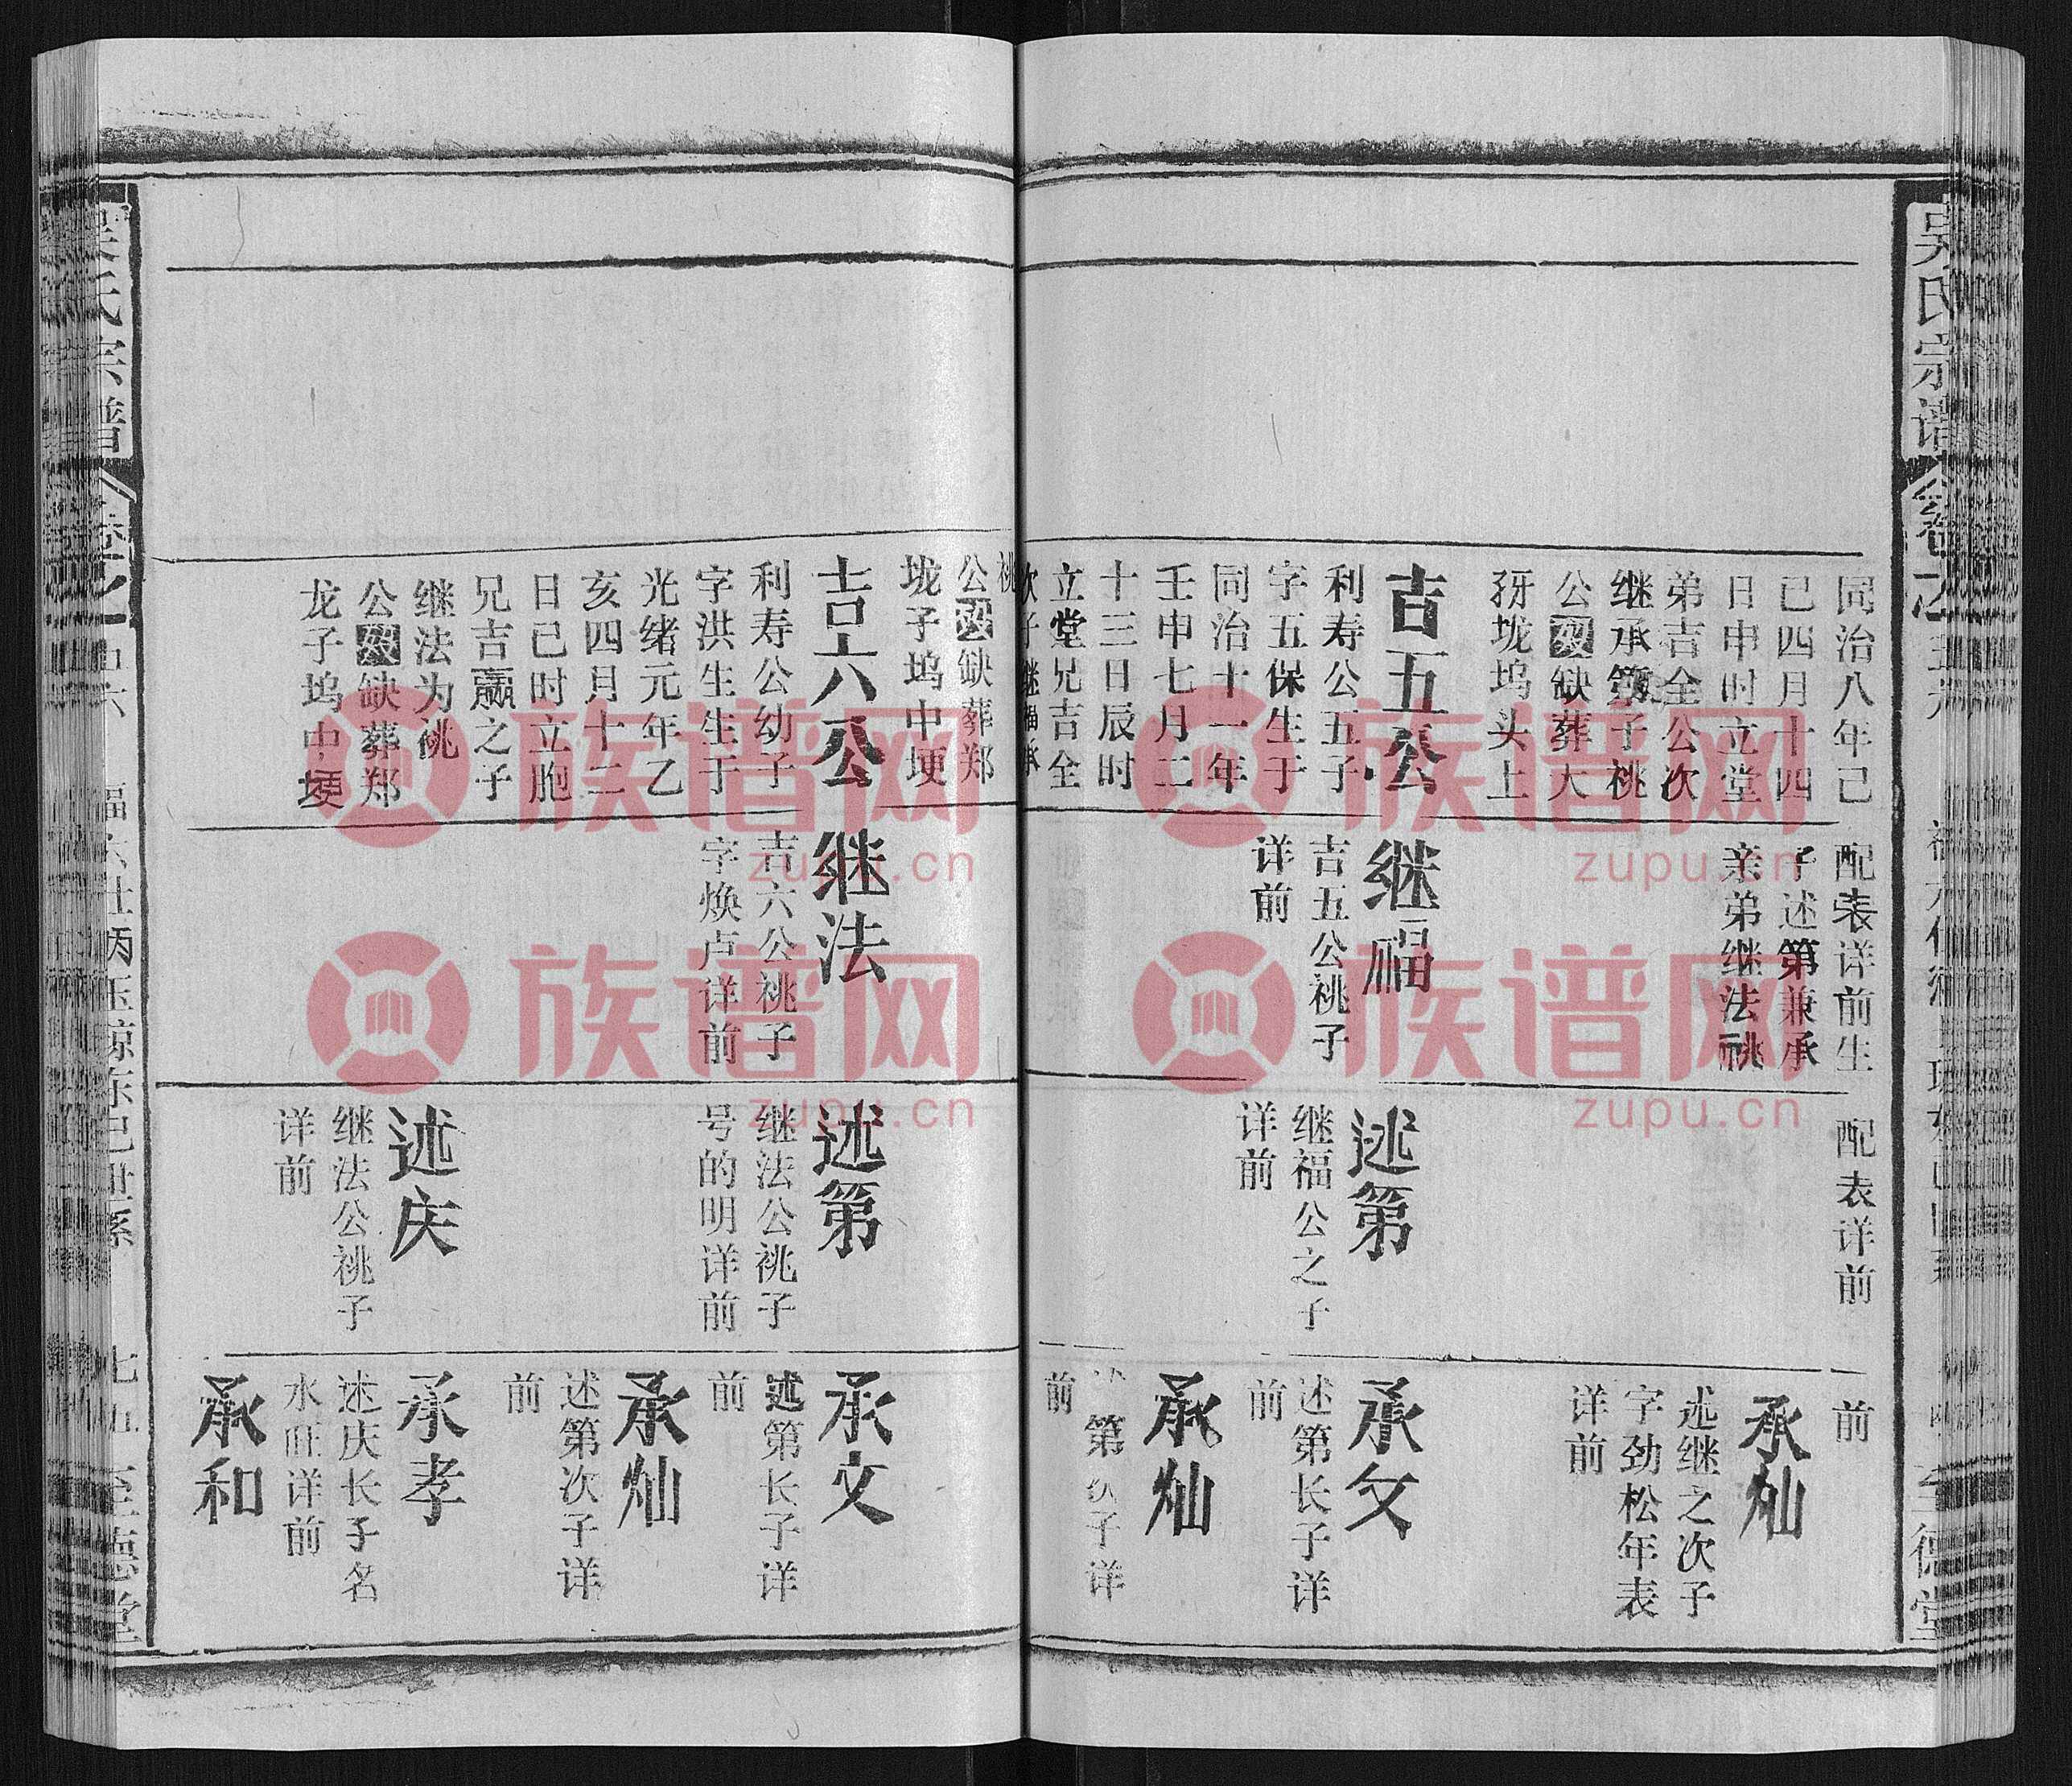 吴氏宗谱
同治八年己
巳四月十四
日申时立堂
弟吉全公次
继承第子祧
公殁缺葬大
犽垅坞头上
吉五公
利寿公五子
字五保生于
同治十一年
壬申七月二
十三日辰时
立堂兄吉全
次子继福承
祧
公殁缺葬郑
垅子坞中埂
吉六公
利寿公幼子
字洪生生于
光绪元年乙
亥四月十二
日巳时立胞
兄吉赢之子
继法为祧
公殁缺葬郑
龙子坞中埂
配表详前生
子述第兼承
亲弟继法祧
继福
吉五公祧子
详前
继法
吉六公祧子
字焕卢详前
配表详前
述第
继福公之子
详前
述第
继法公祧子
号的明详前
述庆
继法公祧子
详前
前
承灿
述继之次子
字劲松年表
详前
承文
述第长子详
前
承灿
第次子详
前
承文
述第长子详
前
承灿
述第次子详
前
承孝
述庆长子名
水旺详前
承和
吴氏宗谱
至德堂
族谱网
zupu.cn
族谱网
zupu.cn
族谱网
zupu.cn
族谱网
zupu.cn